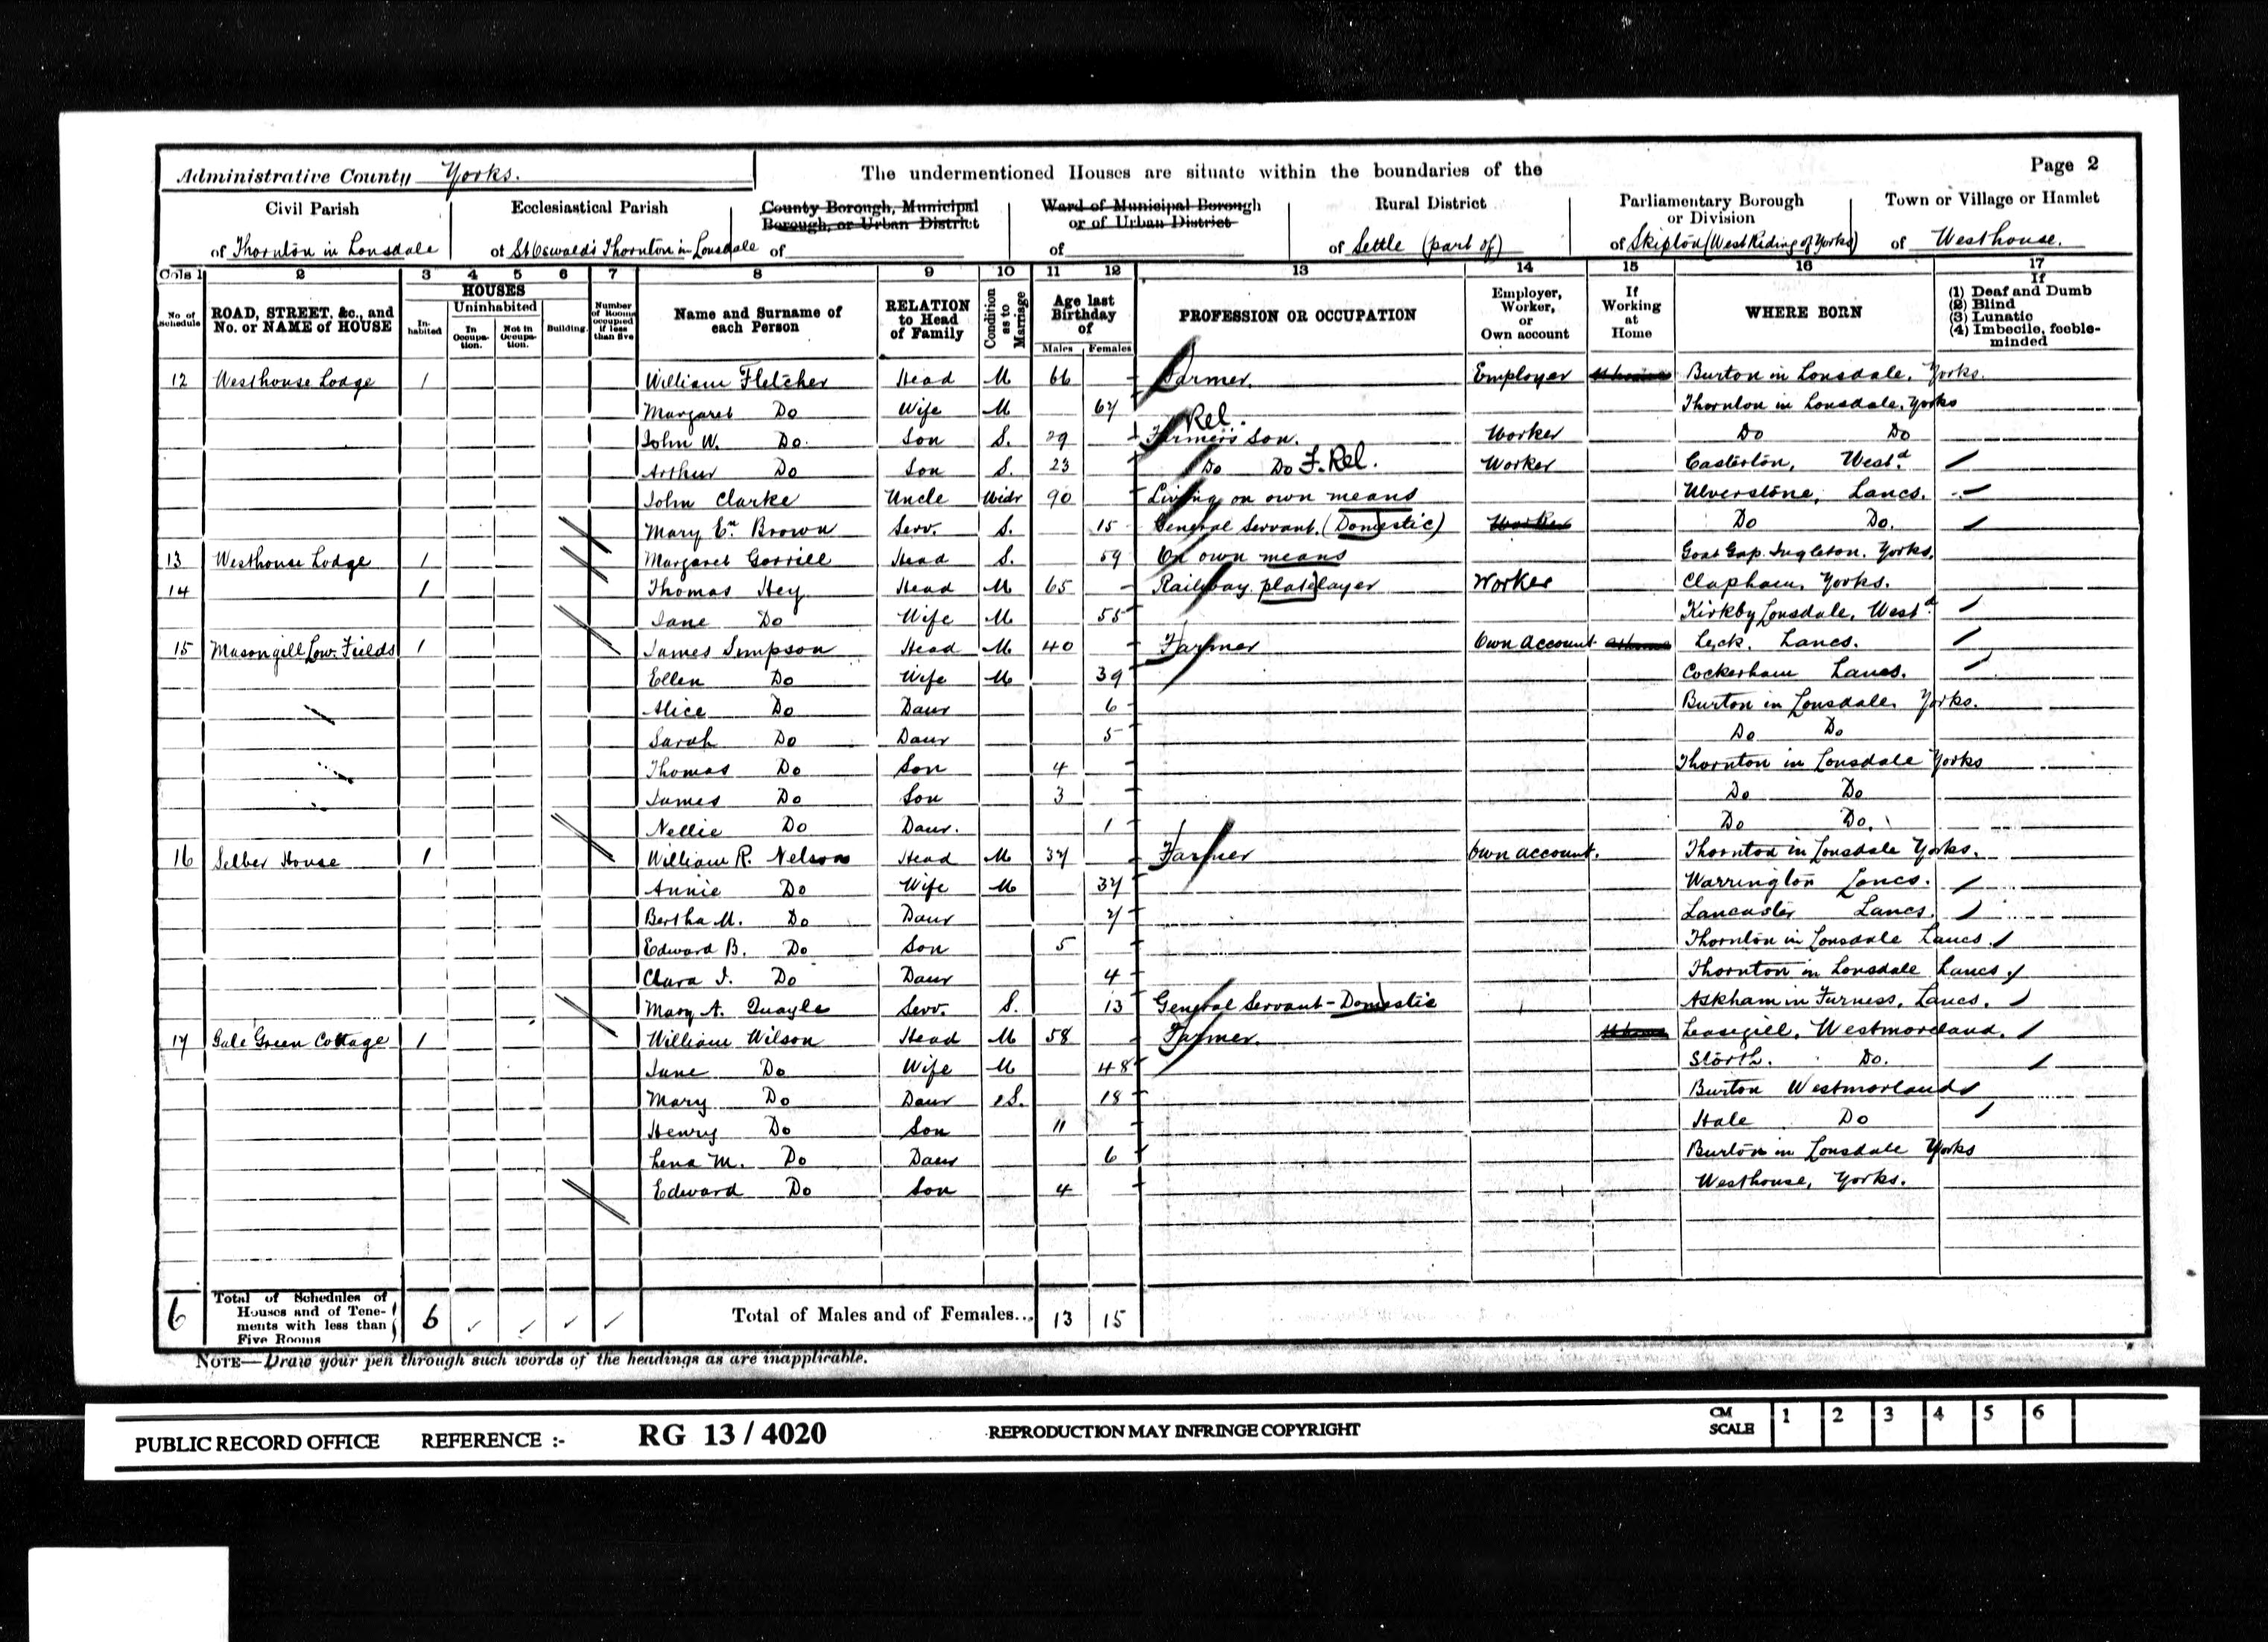 Administrative County Yorks.
The undermentioned Houses are situate within the boundaries of the
Page 2
Civil Parish
of Thornton in Lonsdale
Ecclesiastical Parish
of St Oswald's Thornton in Lonsdale
County Borough, Municipal
Borough, or Urban District
of
Ward of Municipal Borough
or of Urban District
of
Rural District
of Settle (part of)
Parliamentary Borough
or Division
of Skipton (West Riding of Yorks)
Town or Village or Hamlet
of Westhouse.
Cols 1 2 3 4 5 6 7 8 9 10 11 12 13 14 15 16 17
No. of Schedule
ROAD, STREET, &c., and
No. or NAME of HOUSE
HOUSES
In-habited
Uninhabited
In Occupa-tion.
Not in Occupa-tion.
Building
Number of Rooms occupied if less than five
Name and Surname of
each Person
RELATION
to Head
of Family
Condition as to Marriage
Age last
Birthday
of
Males Females
PROFESSION OR OCCUPATION
Employer,
Worker,
or
Own account
If
Working
at
Home
WHERE BORN
If
(1) Deaf and Dumb
(2) Blind
(3) Lunatic
(4) Imbecile, feeble-
minded
12 Westhouse Lodge 1 William Fletcher Head M 66 Farmer. Employer Burton in Lonsdale. Yorks.
Margaret Do Wife M 67 Thornton in Lonsdale. Yorks
Rel.
John W. Do. Son S. 29 Farmer's Son. Worker Do Do
Arthur Do Son S. 23 Do Do F. Rel. Worker Casterton, Westd
John Clarke Uncle Widr 90 Living on own means Ulverstone, Lancs.
Mary En Brown Serv. S. 15 General Servant. (Domestic) Worker Do Do.
13 Westhouse Lodge 1 Margaret Gorrill Head S. 59 On own means Goat Gap. Ingleton. Yorks.
14 1 Thomas Hey Head M 65 Railway platelayer Worker Clapham, Yorks.
Jane Do Wife M 55 Kirkby Lonsdale, Westd
15 Masongill Low. Fields 1 James Simpson Head M 40 Farmer Own account Leck. Lancs.
Ellen Do Wife M 39 Cockerham Lancs.
Alice Do Daur 6 Burton in Lonsdale. Yorks.
Sarah Do Daur 5 Do Do
Thomas Do Son 4 Thornton in Lonsdale Yorks
James Do Son 3 Do Do
Nellie Do Daur. 1 Do Do.
16 Selber House 1 William R. Nelson Head M 37 Farmer Own account. Thornton in Lonsdale Yorks.
Annie Do Wife M 37 Warrington Lancs.
Bertha M. Do Daur 7 Lancaster Lancs.
Edward B. Do Son 5 Thornton in Lonsdale Lancs.
Clara I. Do Daur 4 Thornton in Lonsdale Lancs
Mary A. Quayle Serv. S. 13 General Servant - Domestic Askham in Furness, Lancs.
17 Gale Green Cottage 1 William Wilson Head M 58 Farmer. Leasgill, Westmoreland.
Jane Do Wife M 48 Storth. Do.
Mary Do Daur S. 18 Burton Westmorland
Henry Do Son 11 Hale Do
Lena M. Do Daur 6 Burton in Lonsdale Yorks
Edward Do Son 4 Westhouse, Yorks.
6 Total of Schedules of
Houses and of Tene-
ments with less than
Five Rooms
6
Total of Males and of Females... 13 15
NOTE—Draw your pen through such words of the headings as are inapplicable.
PUBLIC RECORD OFFICE REFERENCE :- RG 13 / 4020 REPRODUCTION MAY INFRINGE COPYRIGHT
CM
SCALE
1 2 3 4 5 6